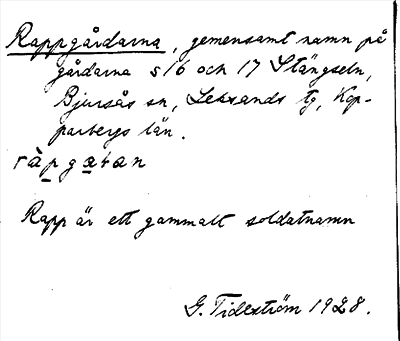 Rappgårdarna, gemensamt namn på
gårdarna s 16 och 17 Stängseln,
Bjursås sn, Leksands tg, Kop-
parbergs län.
Rapp är ett gammalt soldatnamn
G. Tideström 1928.